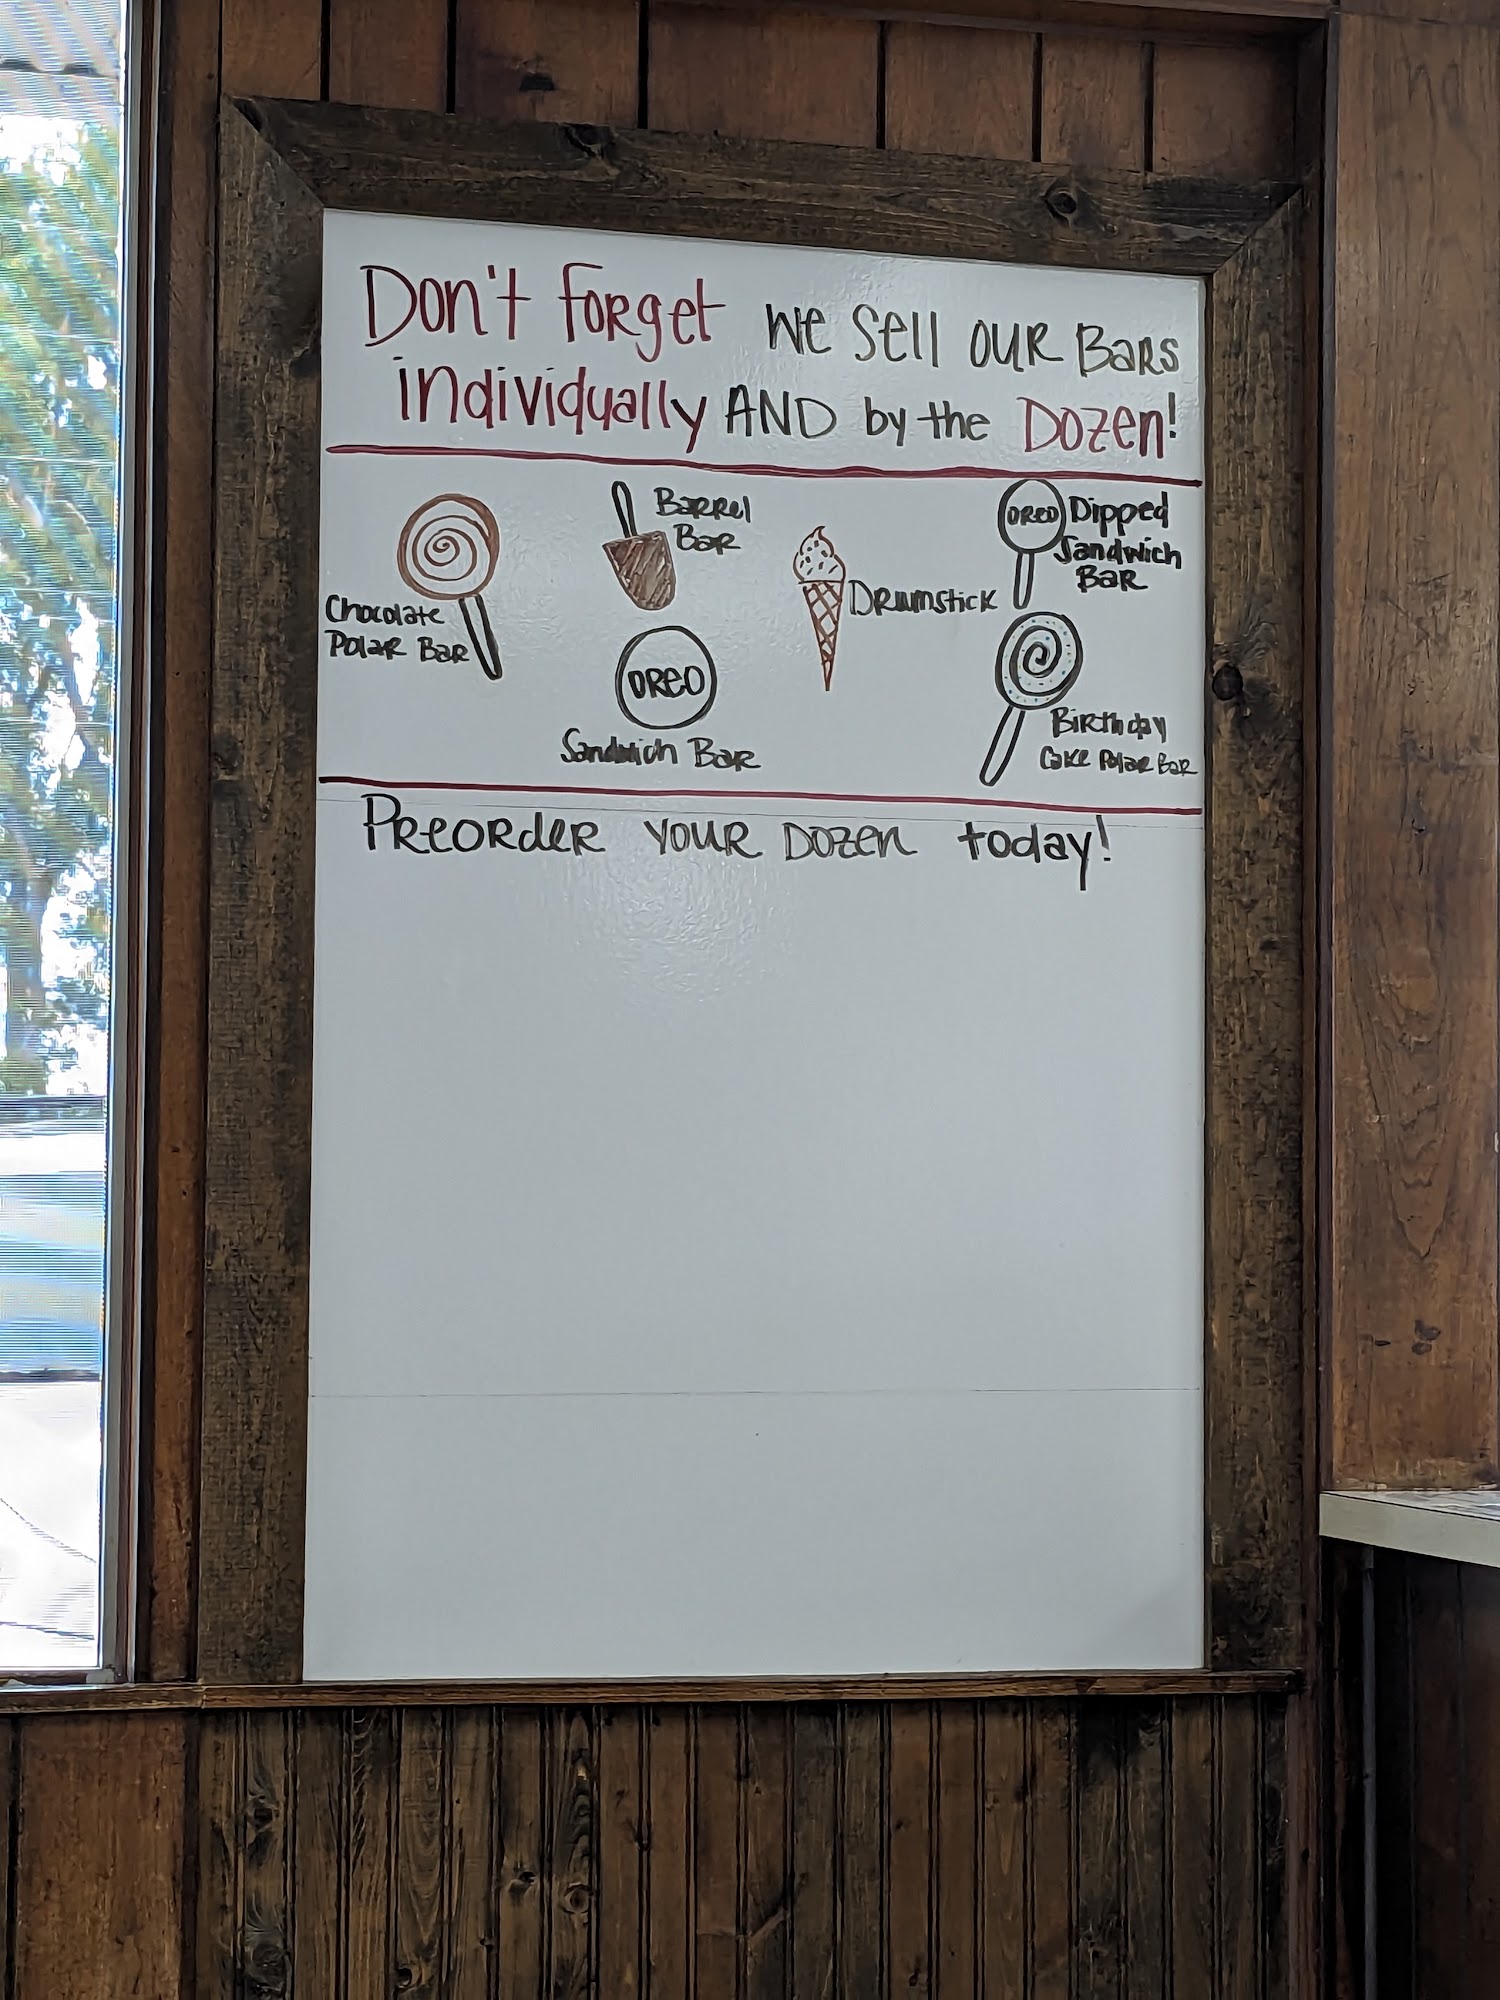 Don't forget we sell our Bars
individually AND by the Dozen!
Chocolate
Polar Bar
Barrel
Bar
OREO
Sandwich Bar
Drumstick
OREO
Dipped
Sandwich
Bar
Birthday
Cake Polar Bar
Preorder your Dozen today!